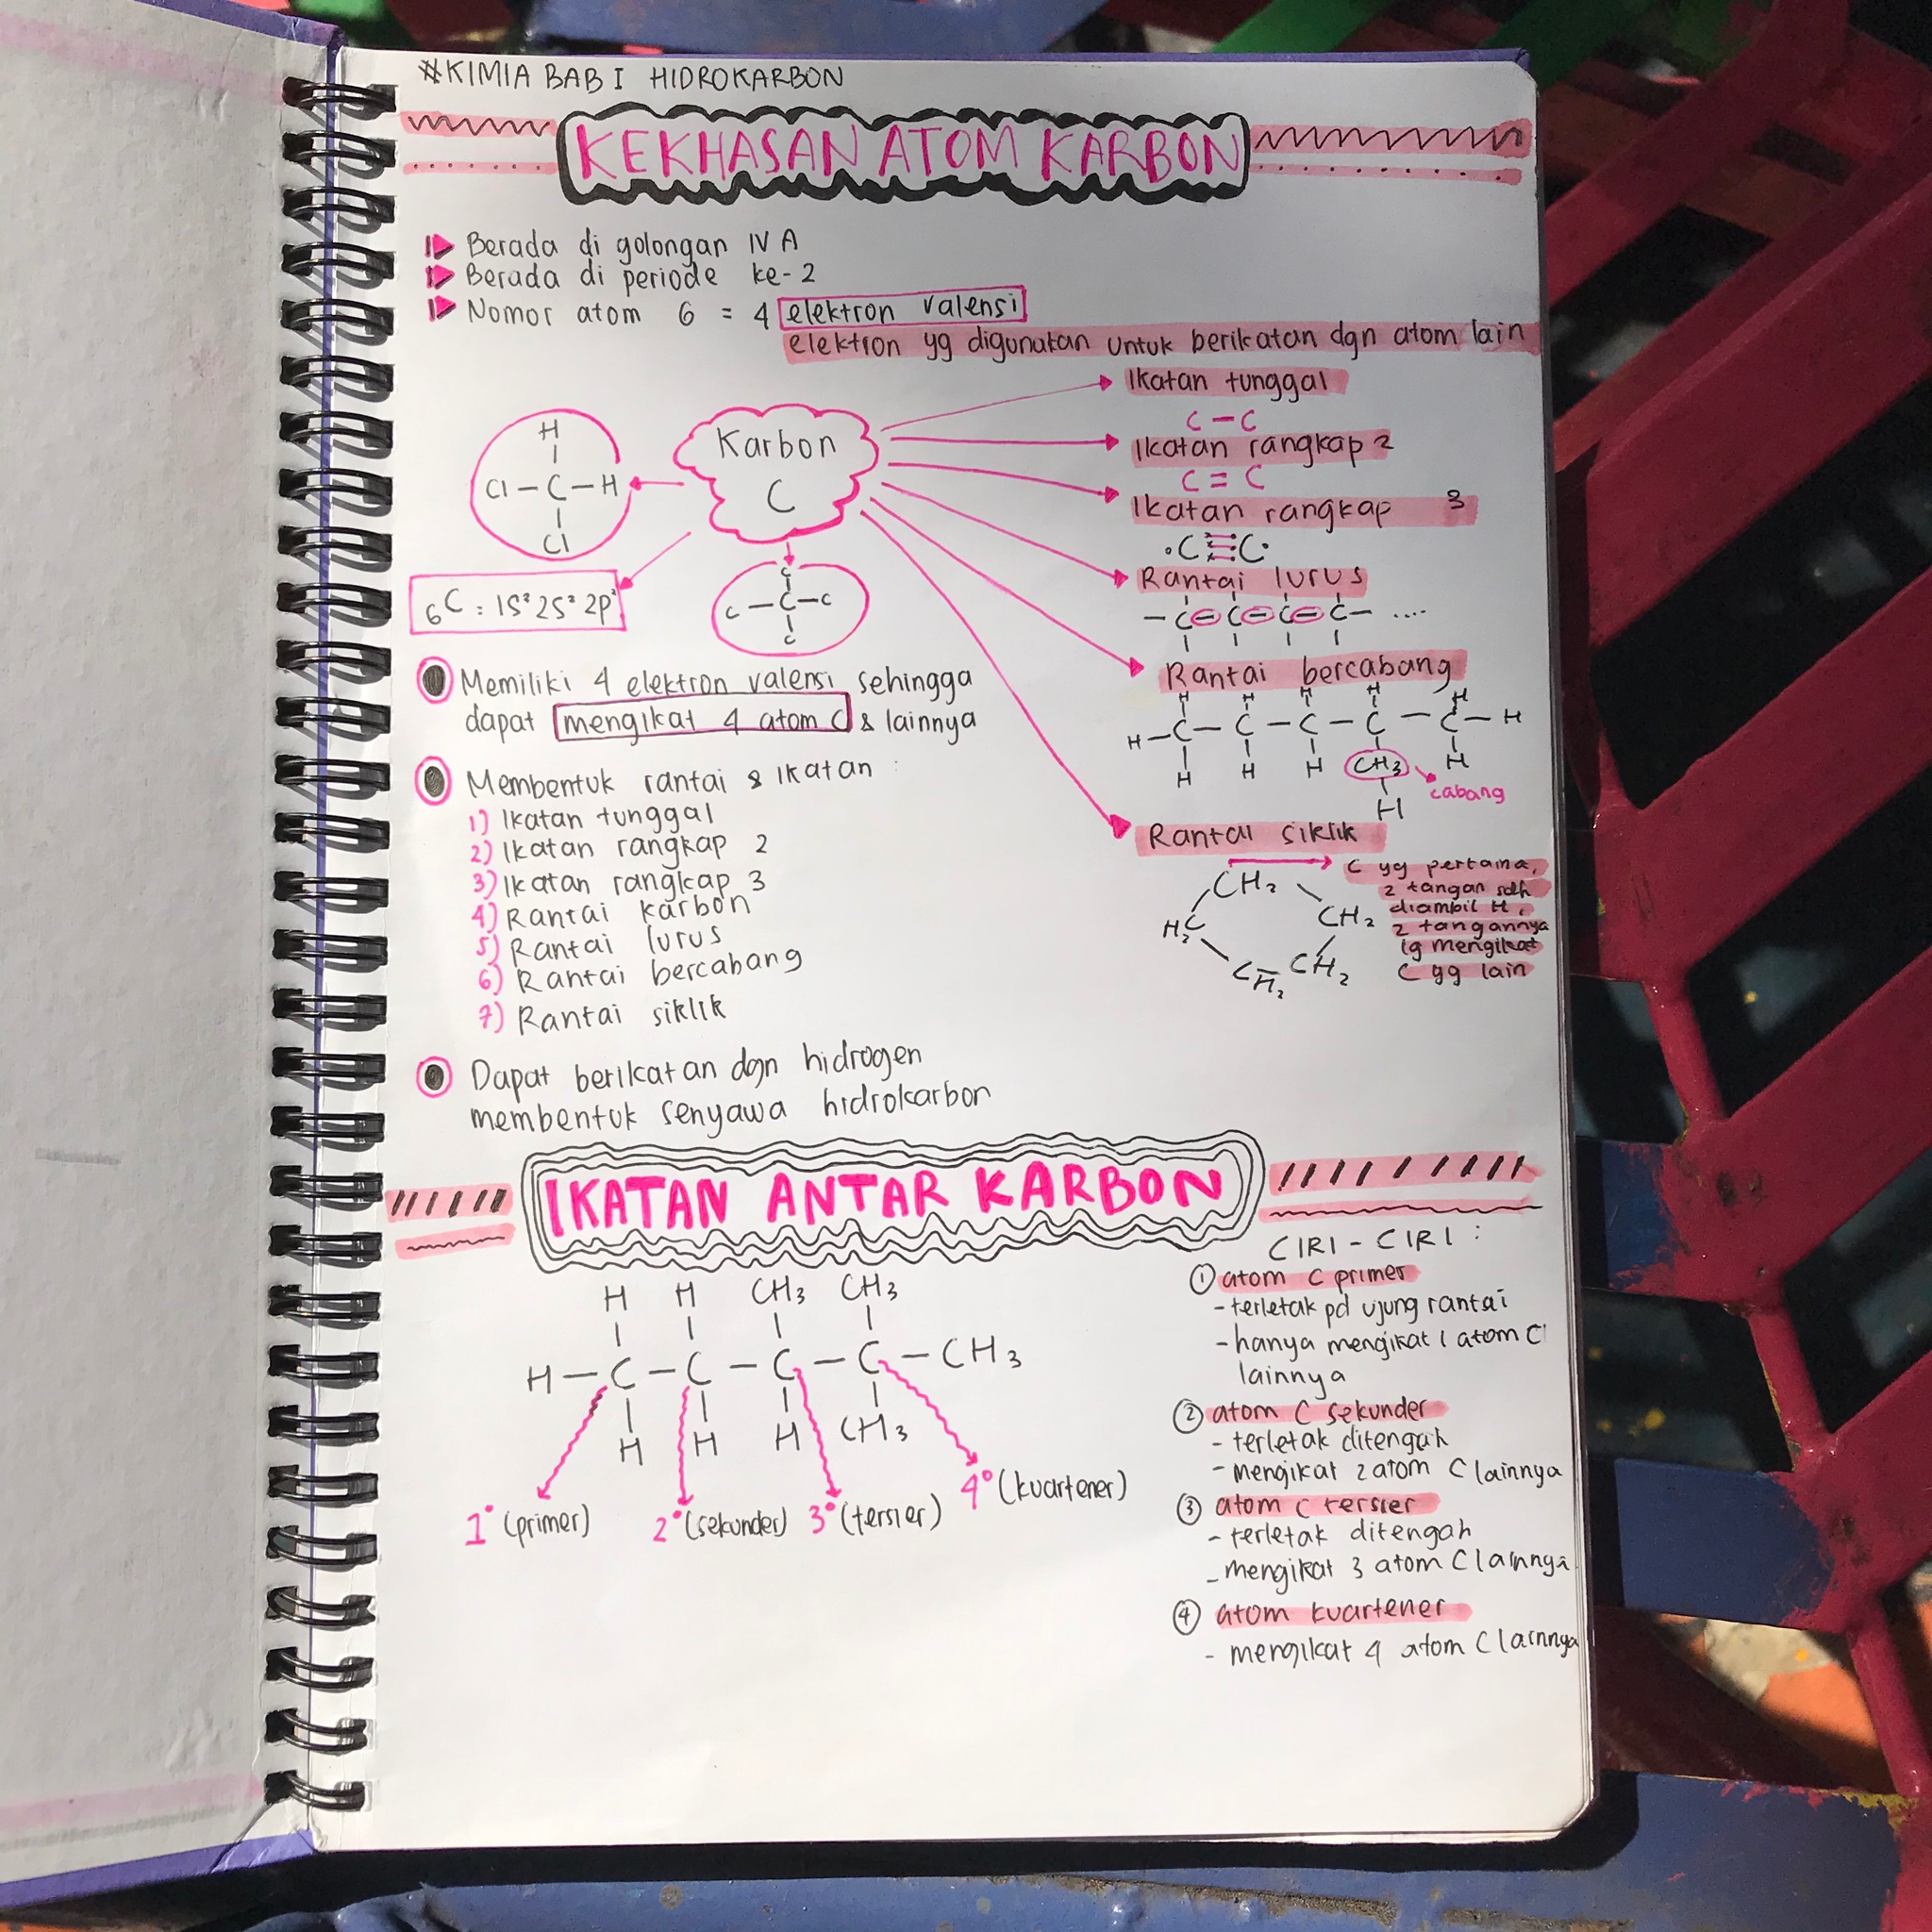 #KIMIA BAB I HIDROKARBON
KEKHASAN ATOM KARBON
Berada di golongan IV A
Berada di periode ke-2
Nomor atom 6 = 4 elektron valensi
elektron yg digunakan untuk berikatan dgn atom lain
Karbon
C
H
Cl – C – H
Cl
6C : 1S² 2S² 2p²
C
C – C – C
C
Ikatan tunggal
C – C
Ikatan rangkap 2
C = C
Ikatan rangkap 3
•C≡C•
Rantai lurus
– C – C – C – C – ....
Rantai bercabang
H H H H H
H – C – C – C – C – C – H
H H H CH3 H
cabang
H
Rantai siklik
CH2
H2C
CH2
CH2
CH2
C yg pertama,
2 tangan sdh
diambil H,
2 tangannya
lg mengikat
C yg lain
Memiliki 4 elektron valensi sehingga
dapat mengikat 4 atom C & lainnya
Membentuk rantai & Ikatan :
1) Ikatan tunggal
2) Ikatan rangkap 2
3) Ikatan rangkap 3
4) Rantai karbon
5) Rantai lurus
6) Rantai bercabang
7) Rantai siklik
Dapat berikatan dgn hidrogen
membentuk senyawa hidrokarbon
IKATAN ANTAR KARBON
H H CH3 CH3
H – C – C – C – C – CH3
H H H CH3
1° (primer) 2° (sekunder) 3° (tersier) 4° (kuartener)
CIRI - CIRI :
① atom C primer
- terletak pd ujung rantai
- hanya mengikat 1 atom C
lainnya
② atom C sekunder
- terletak ditengah
- mengikat 2 atom C lainnya
③ atom C tersier
- terletak ditengah
- mengikat 3 atom C lainnya
④ atom kuartener
- mengikat 4 atom C lainnya